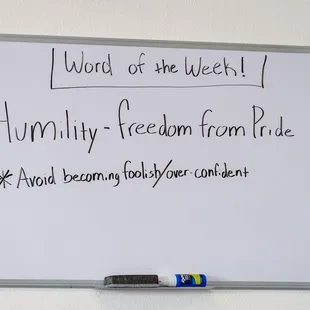 Word of the Week!
Humility - freedom from Pride
* Avoid becoming foolish/over-confident